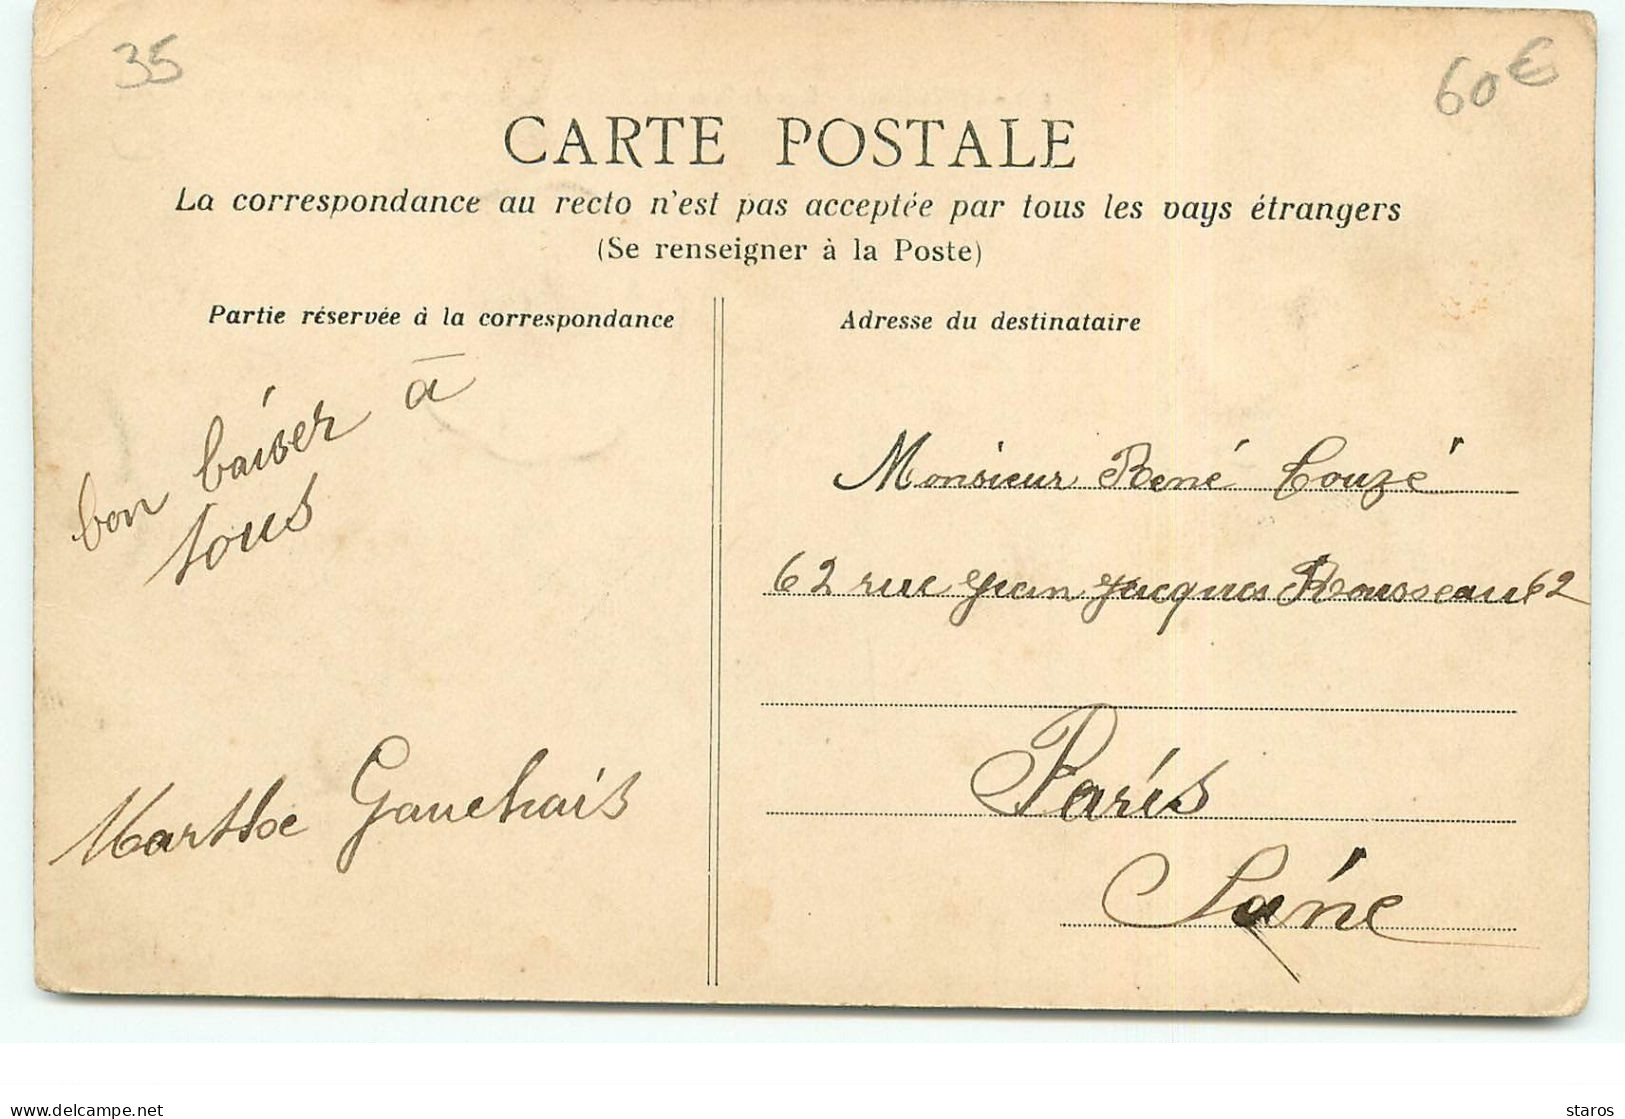 35
60€
CARTE POSTALE
La correspondance au recto n'est pas acceptée par tous les pays étrangers
(Se renseigner à la Poste)
Partie réservée à la correspondance
bon baiser à
tous
Marthe Gauchais
Adresse du destinataire
Monsieur René Couzé
62 rue Jean Jacques Rousseau 62
Paris
Seine
delcampe.net
staros